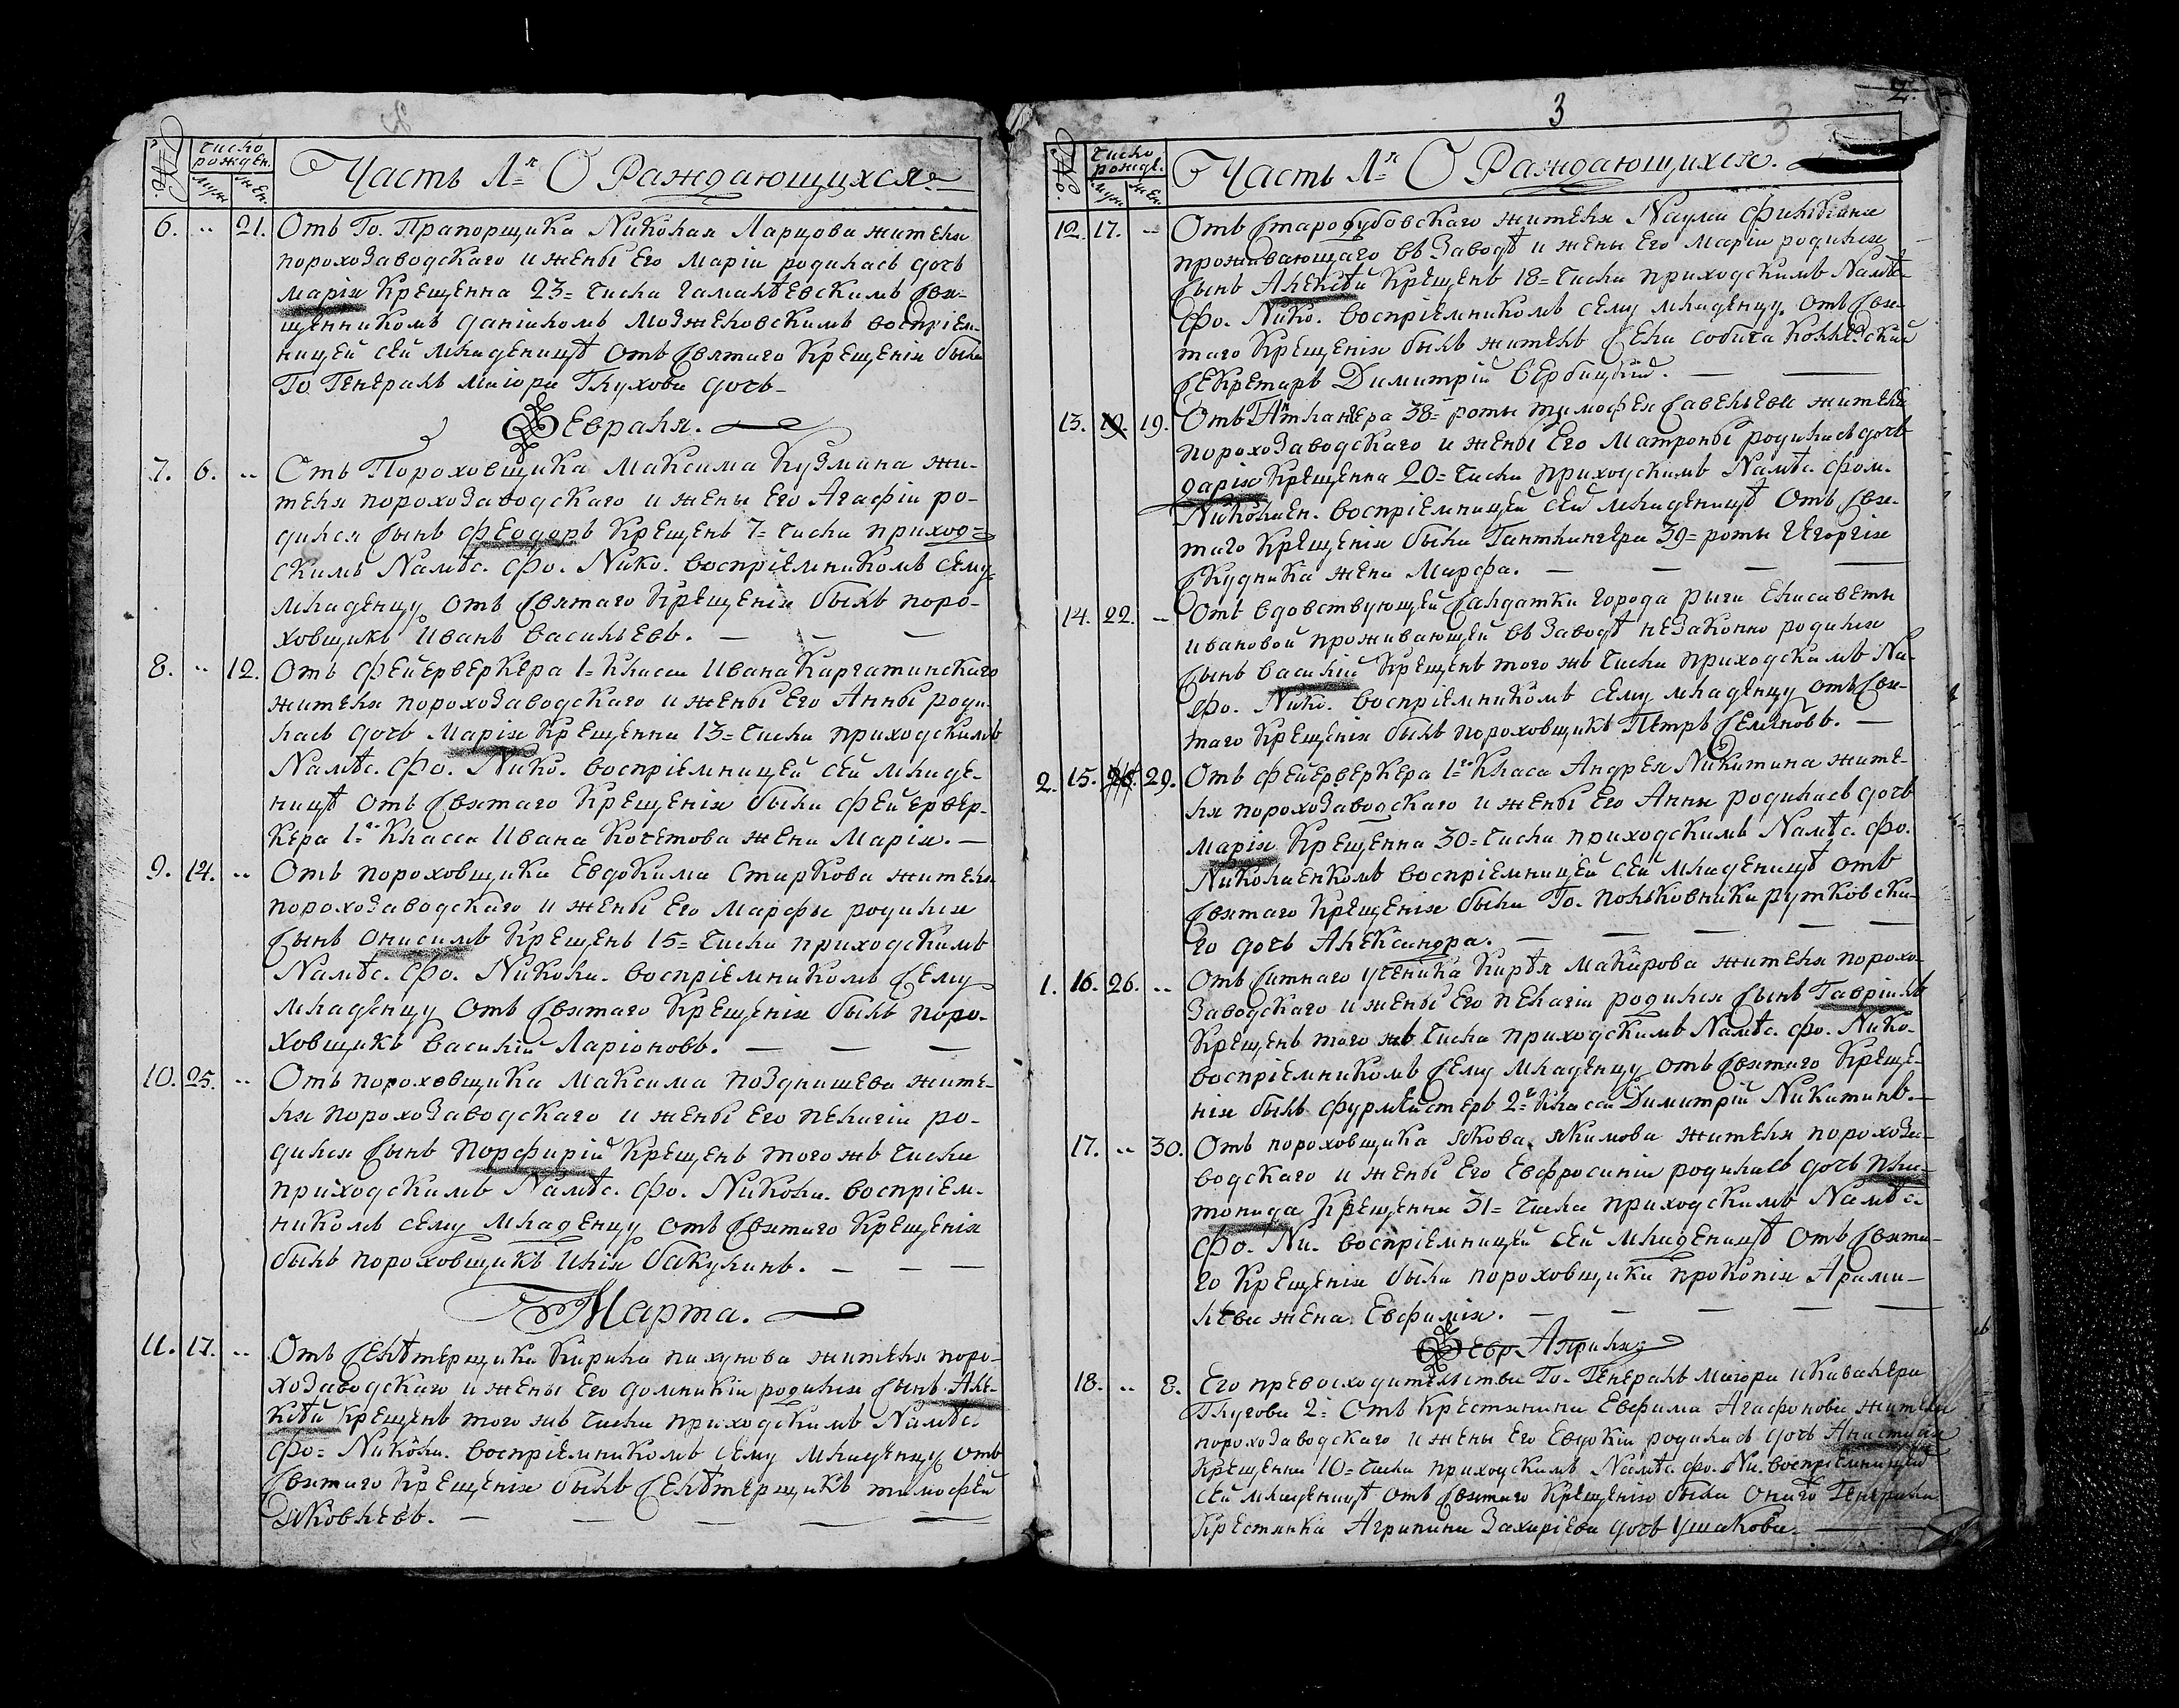 Число рожден.
№ муж. жен.
Часть 1я О Раждающихся
6. .. 21. Отъ Го. Прапорщика Николая Ларцова жителя
порохозаводскаго и жены его Маріи родилась дочь
Марія крещенна 23= числа Гамалѣевскимъ свя-
щенникомъ Даніиломъ Можжековскимъ воспріем-
ницей сей младеницѣ отъ святаго крещенія была
Го Генералъ маіора Глухова дочь –
Февраля.
7. 6. .. Отъ Пороховщика Максима Кузмина жи-
теля порохозаводскаго и жены его Агафіи ро-
дился сынъ Феодоръ крещенъ 7= числа приход=
скимъ Намѣс. Фо. Нико. воспріемникомъ сему
младенцу отъ святаго крещенія былъ поро-
ховщикъ Иванъ Васильевъ. — — —
8. .. 12. Отъ фейерверкера 1= класса Ивана Каргатинскаго
жителя порохозаводскаго и жены его Анны роди-
лась дочь Марія крещенна 13= числа приходскимъ
Намѣс. Фо. Нико. воспріемницей сей младе-
ницѣ отъ святаго крещенія была фейервер-
кера 1го класса Ивана Кочетова жена Марія. —
9. 14. .. Отъ пороховщика Евдокима Старкова жителя
порохозаводскаго и жены его Марфы родился
сынъ Онисимъ крещенъ 15= числа приходскимъ
Намѣс. Фо. Никола. воспріемникомъ сему
младенцу отъ святаго крещенія былъ поро-
ховщикъ Василій Ларіоновъ. — — —
10. 25. .. Отъ пороховщика Максима Позднишева жите-
ля порохозаводскаго и жены его Пелагіи ро-
дился сынъ Порфирій крещенъ того жъ числа
приходскимъ Намѣс. Фо. Никола. воспріем-
никомъ сему младенцу отъ святаго крещенія
былъ пороховщикъ Илія Бакулинъ. — — —
Марта.
11. 17. .. Отъ селѣтерщика Кирила Пахунова жителя поро-
хозаводскаго и жены его Домникіи родился сынъ Але-
ксѣй крещенъ того жъ числа приходскимъ Намѣс.
Фо= Никола. воспріемникомъ сему младенцу отъ
святаго крещенія былъ селѣтерщикъ Тимофей
Яковлевъ. — — — — —
3
2.
Число рожде.
№ муж. жен.
Часть 1я О Раждающихся.
12. 17. .. Отъ Стародубовскаго жителя Наума
проживающаго въ заводѣ и жены его Маріи родился
сынъ Алексѣй крещенъ 18= числа приходскимъ Намѣ-
Фо. Нико. воспріемникомъ сему младенцу отъ свя-
таго крещенія былъ житель села Собича коллежскій
секретарь Димитрій Вербицкій. — —
13. 19. 19. Отъ Гантлангера 38= роты Тимофея Савельева жителя
порохозаводскаго и жены его Матроны родилась дочь
Дарія крещенна 20= числа приходскимъ Намѣс. Фом.
Николаен. воспріемницей сей младеницѣ отъ свя-
таго крещенія была Гантлангера 39= роты Георгія
Скудника жена Марфа. — — — —
14. 22. .. Отъ вдовствующей салдатки города Риги Елисаветы
Ивановой проживающей въ заводѣ незаконно родился
сынъ Василій крещенъ того жъ числа приходскимъ На-
Фо. Нико. воспріемникомъ сему младенцу отъ свя-
таго крещенія былъ пороховщикъ Петръ Семеновъ. —
2. 15. 29. Отъ фейерверкера 1го класа Андрея Никитина жите-
ля порохозаводскаго и жены его Анны родилась дочь
Марія крещенна 30= числа приходскимъ Намѣс. Фо.
Николаенкомъ воспріемницей сей младеницѣ отъ
святаго крещенія была Го. Полковника Рутковска-
го дочь Александра. — — — — —
1. 16. 26. .. Отъ ситнаго ученика Кирѣя Макарова жителя порохо-
заводскаго и жены его Пелагіи родился сынъ Гавріилъ
крещенъ того жъ числа приходскимъ Намѣс. Фо. Нико-
воспріемникомъ сему младенцу отъ святаго креще-
нія былъ фурмейстеръ 2го класса Димитрій Никитинъ. —
17. .. 30. Отъ пороховщика Якова Якимова жителя порохоза-
водскаго и жены его Евфросиніи родилась дочь Пла-
тонида крещенна 31= числа приходскимъ Намѣс.
Фо. Ни. воспріемницей сей младеницѣ отъ свята-
го крещенія была пороховщика Прокопія Арама-
лева жена Евфимія. — — — — —
Февр Априля
18. .. 8. Его превосходительства Го. Генералъ маіора и кавалера
Глухова 2= отъ крестянина Евфима Агафонова жителя
порохозаводскаго и жены его Евдокіи родилась дочь Анастасія
крещенна 10= числа приходскимъ Намѣс. Фо. Ни. воспріемницей
сей младеницѣ отъ святаго крещенія была онаго Генерала
крестянка Агрипина Захаріева дочь Ушакова. —